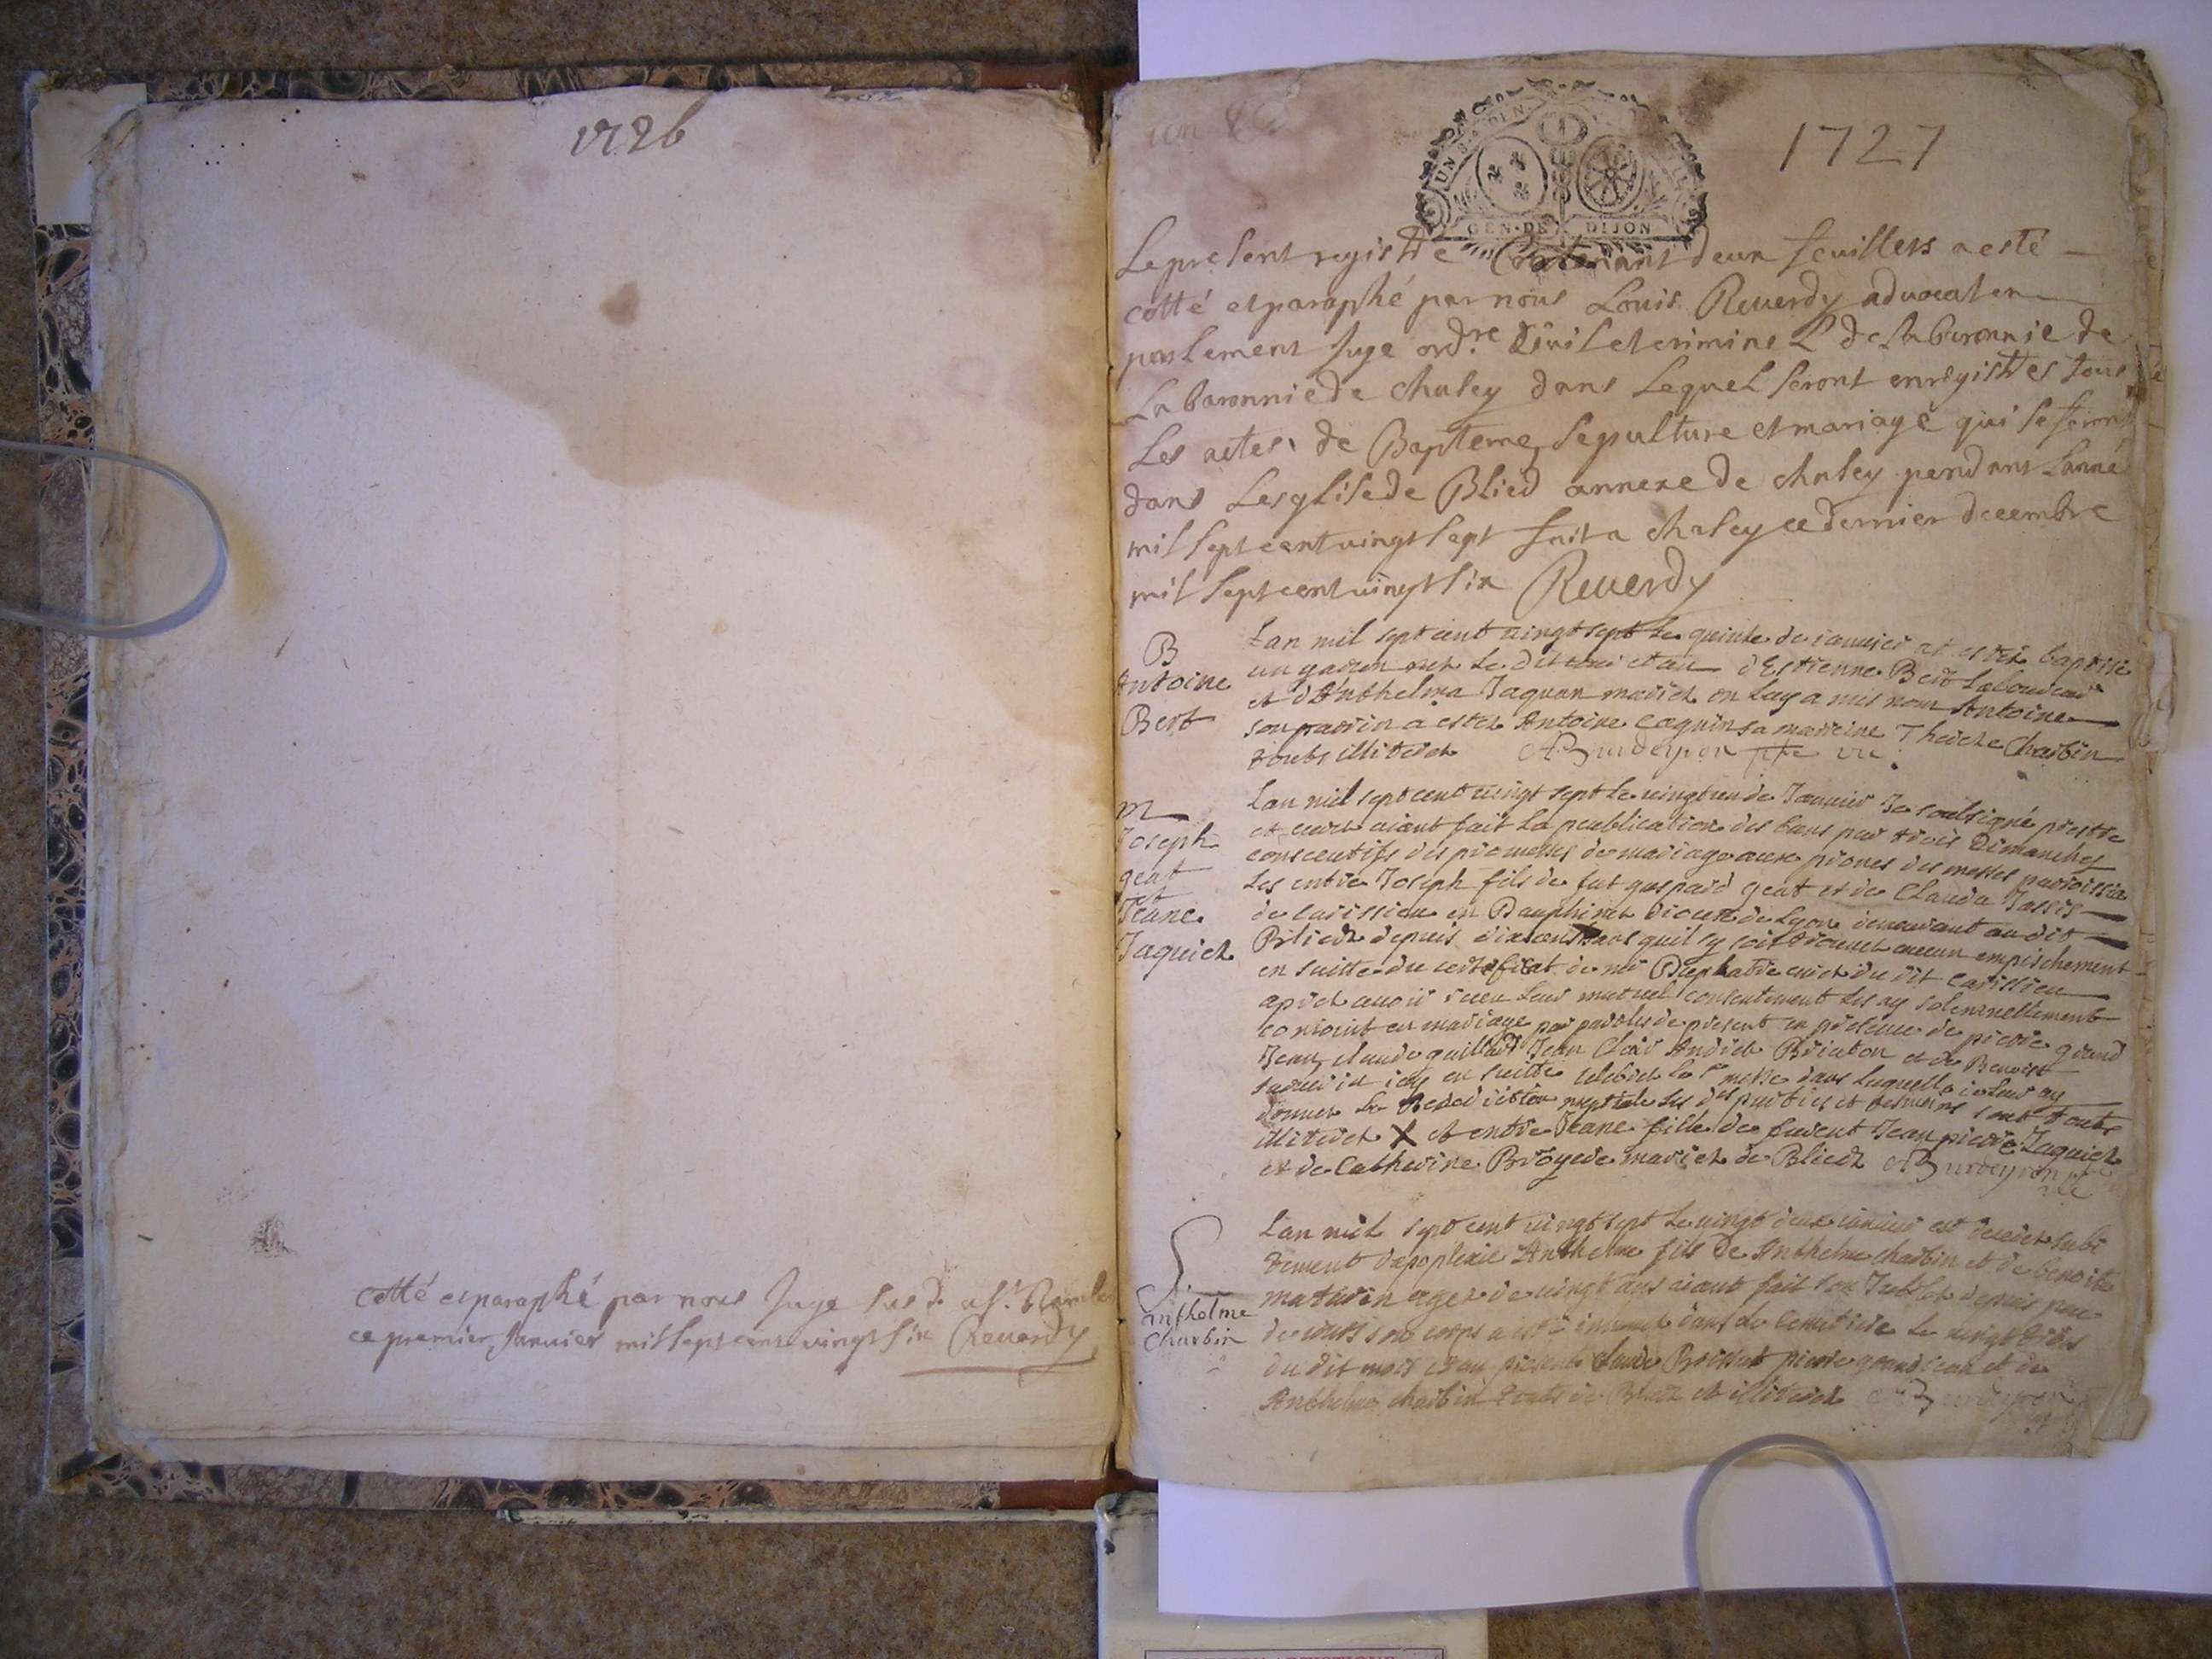 1726
cotté et paraphé par nous Juge susd.
ce premier Janvier mil sept cent vingt six Reuerdy
GEN·DE DIJON
1727
Le present registre Contenant deux feuillets a esté
cotté et paraphé par nous Louis Reuerdy advocat en
parlement Juge ordre. Civil et criminel de la baronnie de
La baronnie de Chaley dans Lequel seront enregistres tous
Les actes de Bapteme, Sepulture et mariage qui se feront
dans Lesglise de Blied annexe de Chaley pendant Lanné
mil sept cent vingt sept fait a Chaley ce dernier decembre
mil sept cent vingt six Reuerdy
B
Antoine
Bert
Lan mil sept cent vingt sept le quinze de ianvier at estez baptisé
un garcon nez le dit d'Estienne Bert laboureur
et d'Anthelma Jaquan mariez on luy a mis nom Antoine
son parrin a estez Antoine caguin sa marrine Therese Charbin
touts illiterez
m
Joseph
geat
et
Jeane
Jaquiez
Lan mil sept cent vingt sept le vingt un de Janvier Je soubsigné prestre
et curez aiant fait la publication des bans par trois Dimanches
consecutifs des promesses de mariage aux prones des messes parroissia
les entre Joseph fils de fut gaspard geat et de Clauda
de Carissieu en Dauphinez diocese de Lyon demeurant audit
Bliedz depuis dix ans sans quil sy soit trouvez aucun empischement
en suitte du certificat de mr curez du dit Carissieu
aprez avoir receu leur mutuel consentement les ay solemnellement
conioint en mariage par paroles de present en presence de pierre grand
Jean, claude guillot Jean Andrez et de Benoist
ie ay en suitte celebrez la ste messe dans laquelle ie leur ay
donnez la Benediction nuptiale les des parties et tesmoins sont touts
illiterez X et entre Jeane fille de furent Jean pierre Jaquiez
et de Catherine Broyere mariez de Bliedz
S
Anthelme
Charbin
Lan mil sept cent vingt sept le vingt deux ianvier est decedez subi
tement dapoplexie Anthelme fils de Anthelme charbin et de benoite
maturin agez de vingt ans aiant fait son Jubilez depuis peu
de iours son corps a esté inhumez dans le Cemetiere le vingt trois
du dit mois et an presents Claude Brossat pierre grand jean et de
Anthelme charbin touts de Bliedz et illiterez